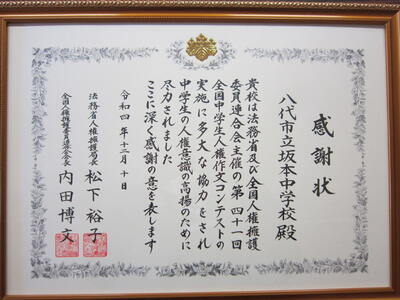 感謝状
八代市立坂本中学校殿
貴校は法務省及び全国人権擁護
委員連合会主催の第四十一回
全国中学生人権作文コンテストの
実施に多大な協力をされ
中学生の人権意識の高揚のために
尽力されました
ここに深く感謝の意を表します
令和四年十二月十日
法務省人権擁護局長 松下裕子
全国人権擁護委員連合会会長 内田博文